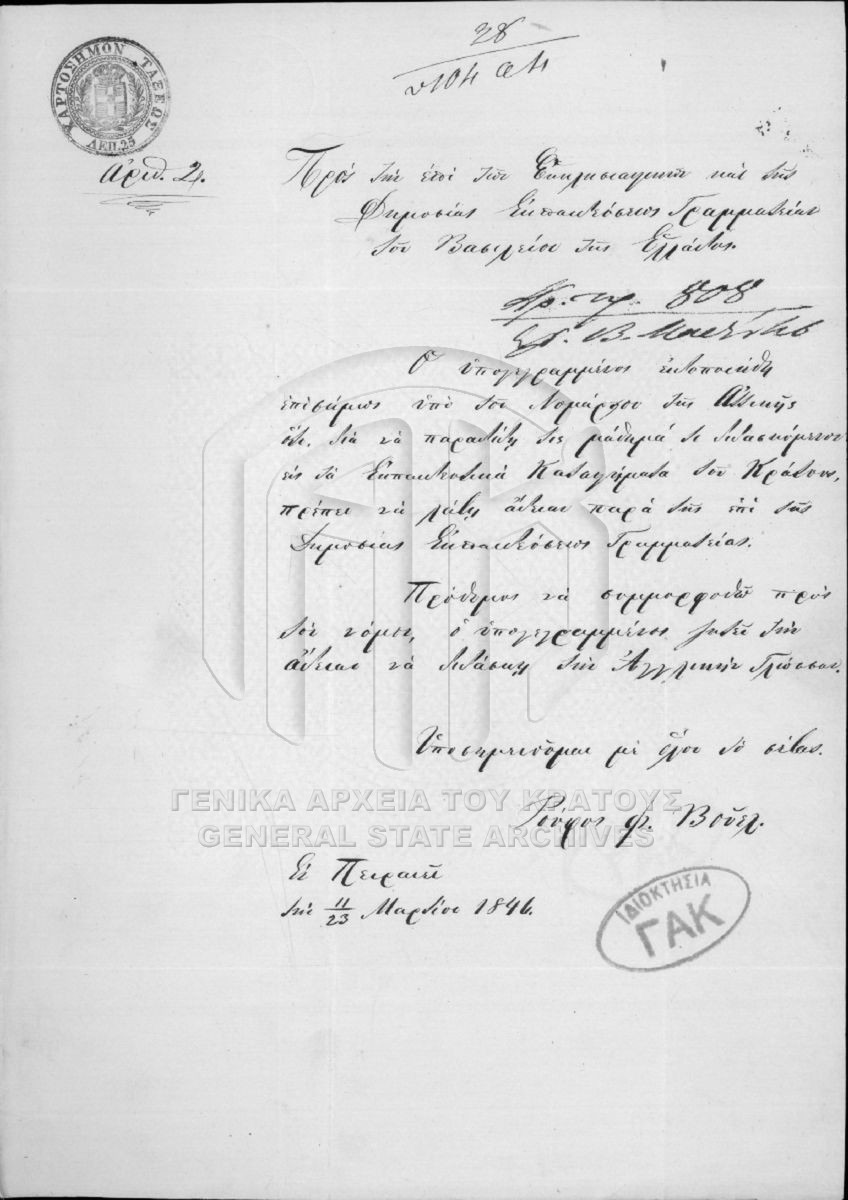 28
ΧΑΡΤΟΣΗΜΟΝ ΤΑΞΕΩΣ
ΛΕΠ. 25
Ἀριθ. 2.
Πρὸς τὴν ἐπὶ τῶν Ἐκκλησιαστικῶν καὶ τῆς
Δημοσίας Ἐκπαιδεύσεως Γραμματείαν
τοῦ Βασιλείου τῆς Ἑλλάδος.
Ἀρ. πρ. 808
Ὁ ὑπογεγραμμένος εἰδοποιήθη
ἐπισήμως ὑπὸ τοῦ Νομάρχου τῆς Ἀττικῆς
ὅτι, διὰ νὰ παραδίδῃ τις μάθημά τι διδασκόμενον
εἰς τὰ Ἐκπαιδευτικὰ Καταστήματα τοῦ Κράτους,
πρέπει νὰ λάβῃ ἄδειαν παρὰ τῆς ἐπὶ τῆς
Δημοσίας Ἐκπαιδεύσεως Γραμματείας.
Πρόθυμος νὰ συμμορφωθῶ πρὸς
τὸν νόμον, ὁ ὑπογεγραμμένος ζητεῖ τὴν
ἄδειαν νὰ διδάσκῃ τὴν Ἀγγλικὴν Γλῶσσαν.
Ὑποσημειοῦμαι μὲ ὅλον τὸ σέβας.
ΓΕΝΙΚΑ ΑΡΧΕΙΑ ΤΟΥ ΚΡΑΤΟΥΣ
GENERAL STATE ARCHIVES
Ῥοῦφος Φ. Βοῦελ.
Ἐν Πειραιεῖ
τὴν 11/23 Μαρτίου 1846.
ΙΔΙΟΚΤΗΣΙΑ
ΓΑΚ